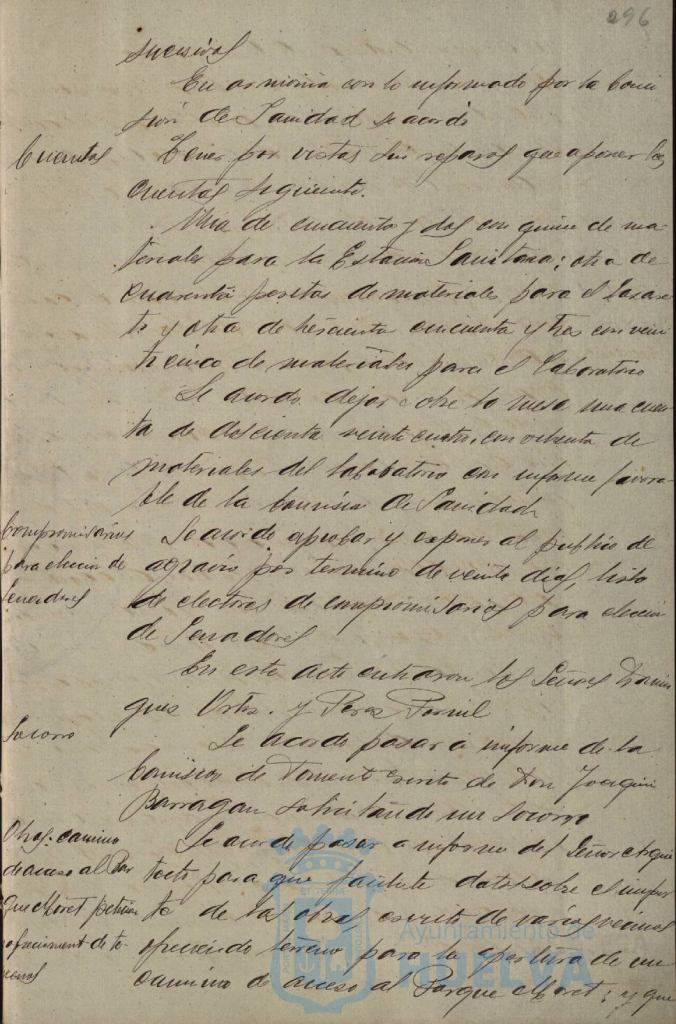 296
sucesivas
En armonia con lo informado por la Comi
sion de Sanidad se acordó
Cuentas
Tener por vistas sin reparos que aponer las
cuentas siguiente.
Una de cincuenta y dos con quince de ma
teriales para la Estación Sanitaria; otra de
cuarenta pesetas de materiales para el Lazare
to y otra de trescienta cincuenta y tres con vein
ticinco de materiales para el Laboratorio
Se acordo dejar sobre la mesa una cuen
ta de doscienta veinte cuatro, con ochenta de
materiales del laboratorio con informe favora
ble de la Comisión de Sanidad
Compromisarios
para eleccion de
Senadores
Se acordo aprobar y exponer al publico de
agravio por termino de veinte dias, lista
de electores de compromisarios para elección
de Senadores
En este acto entraron los Señores Domin
guez Ortiz. y Perez
Socorro
Se acordo pasar a informe de la
Comision de Foment escrito de Don Joaquin
Barragan solicitando un Socorro
Obras camino
de acceso al Par
que Moret peticion
ofrecimient de te
rrenos
Se acordo pasar a informe del Señor Arqui
tecto para que facilite datos sobre el impor
te de las obras, escrito de varios vecinos
ofreciendo terreno para la apertura de un
camino de acceso al Parque Moret; y que
Ayuntamiento de
HUELVA